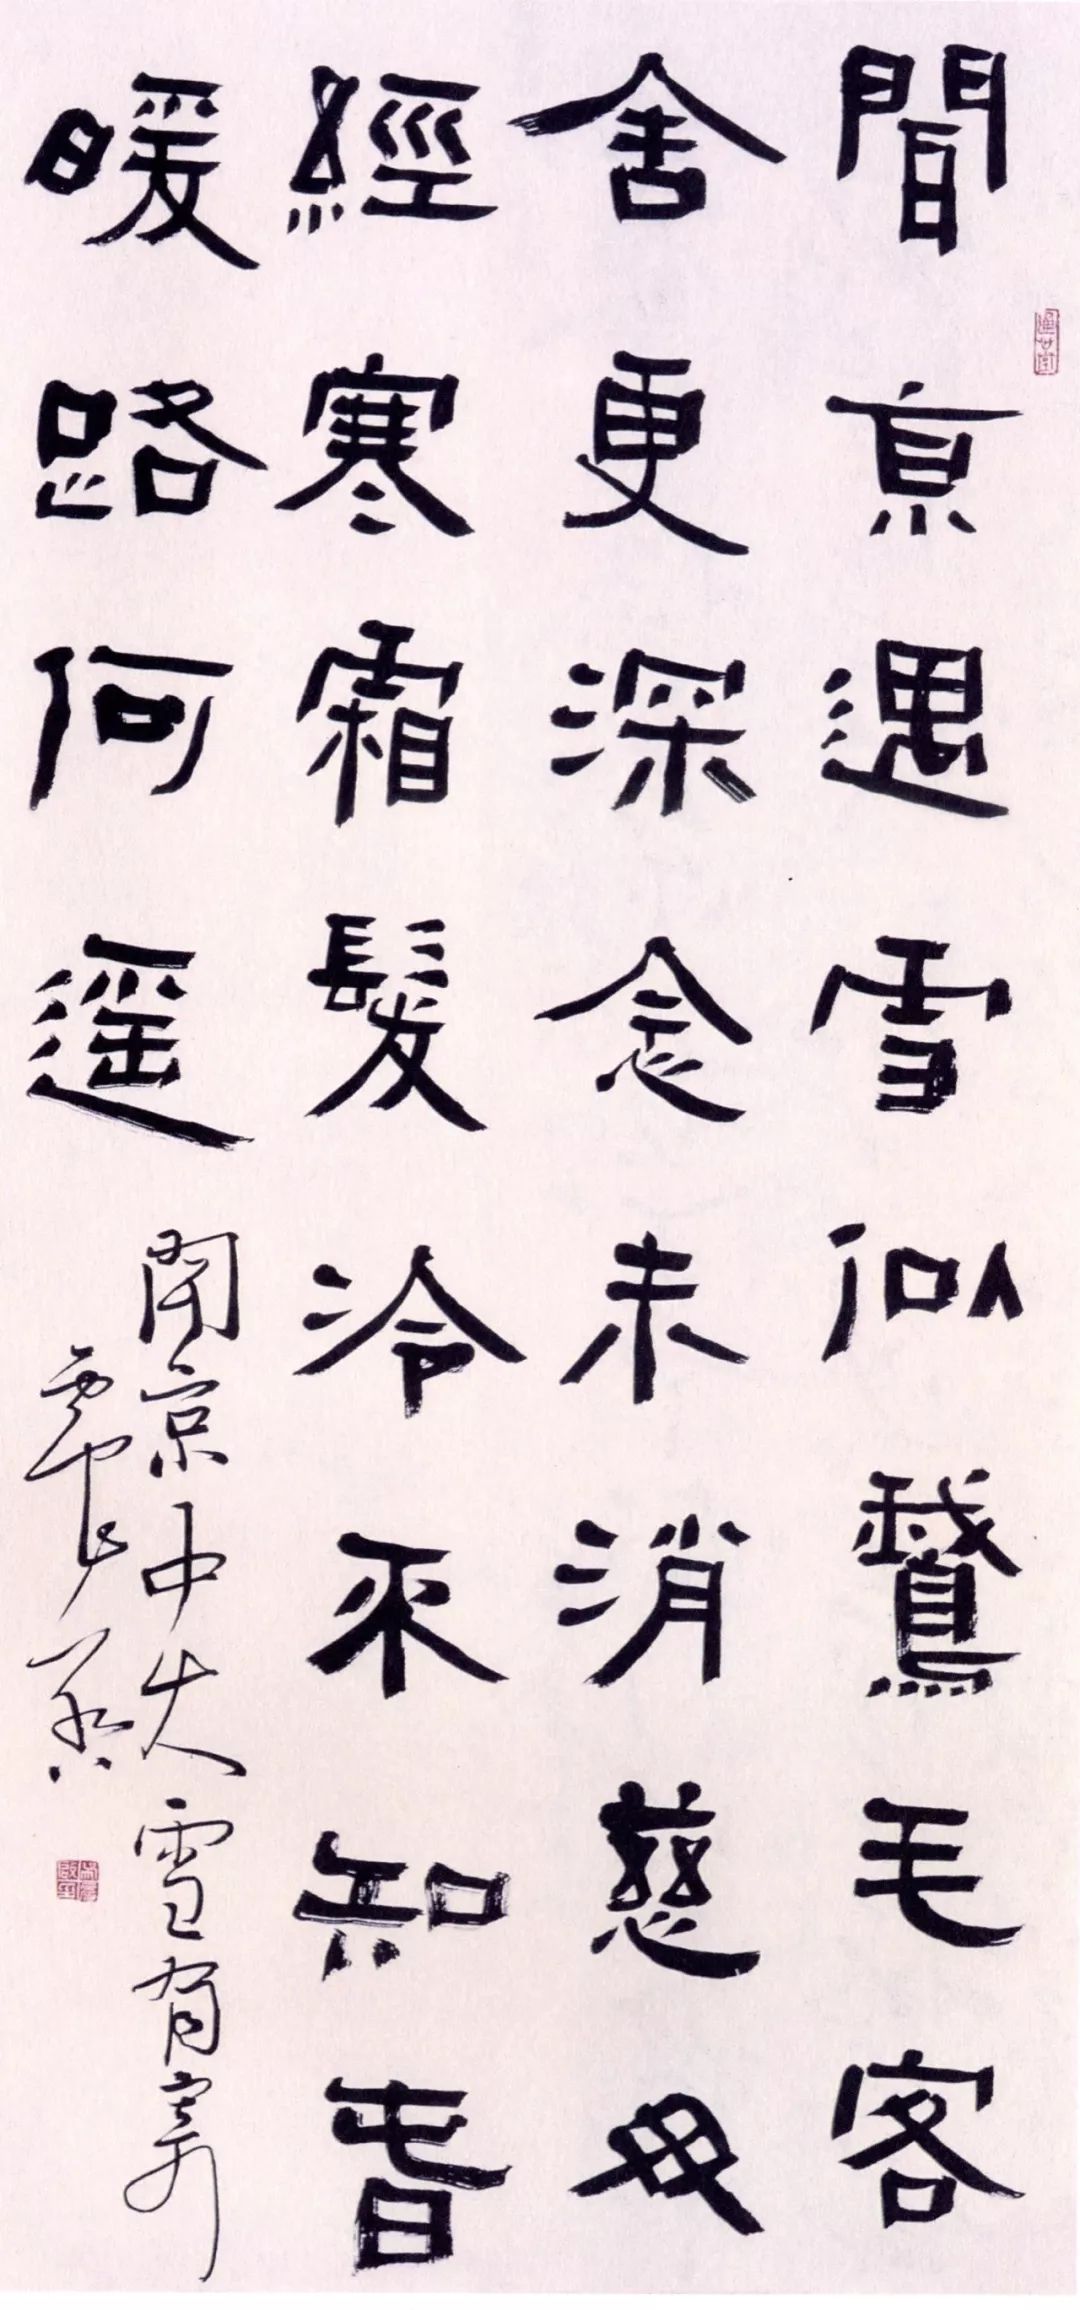 聞京遇雪似鵞毛客
舍更深念未消慈母
經寒霜髮冷来知春
暖路何遥
聞京中大雪有寄